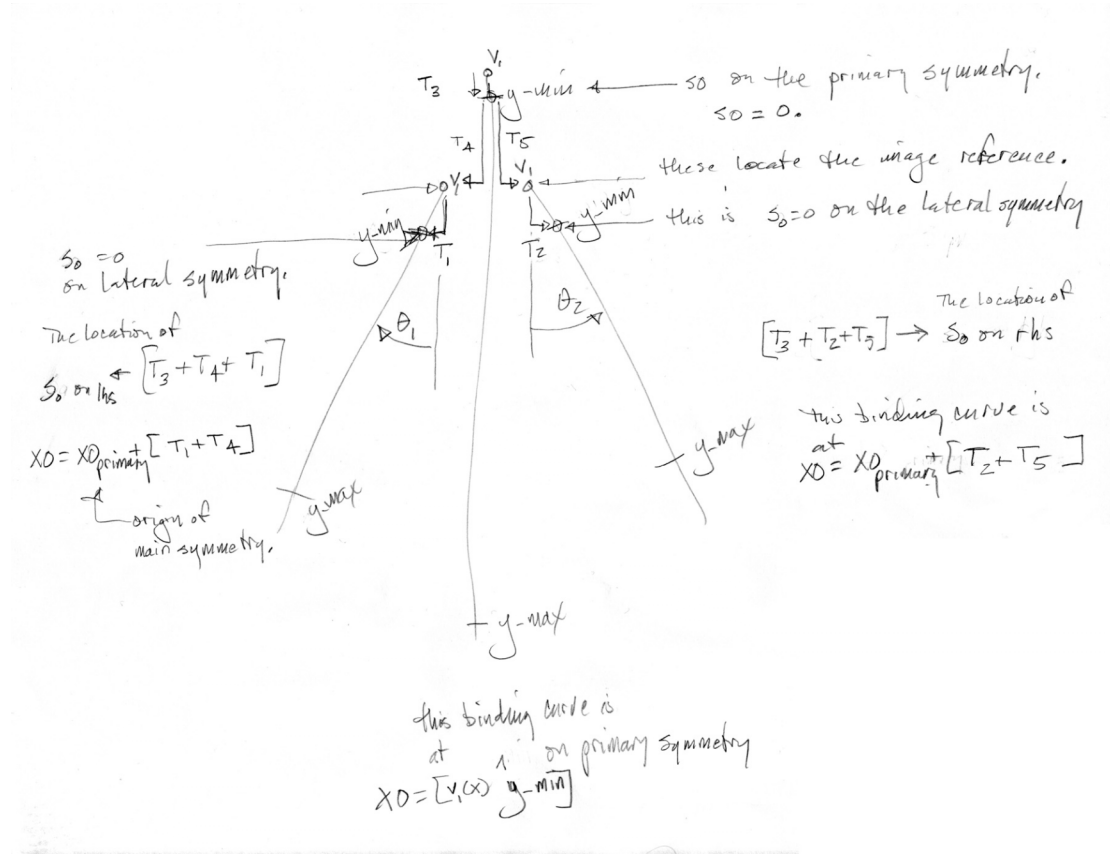 V₁
T₃
y-min
so on the primary symmetry.
so = 0.
T₄
T₅
V₁
V₁
these locate the image reference.
y-min
y-min
this is S₀=0 on the lateral symmetry
T₁
T₂
S₀ = 0
on lateral symmetry.
θ₁
θ₂
The location of
S₀ on lhs ← [T₃ + T₄ + T₁]
The location of
[T₃ + T₂ + T₅] → S₀ on rhs
XO = XO primary + [T₁ + T₄]
origin of
main symmetry.
this binding curve is
at
XO = XO primary + [T₂ + T₅]
y-max
y-max
y-max
this binding curve is
at on primary symmetry
XO = [V₁(x) y-min]